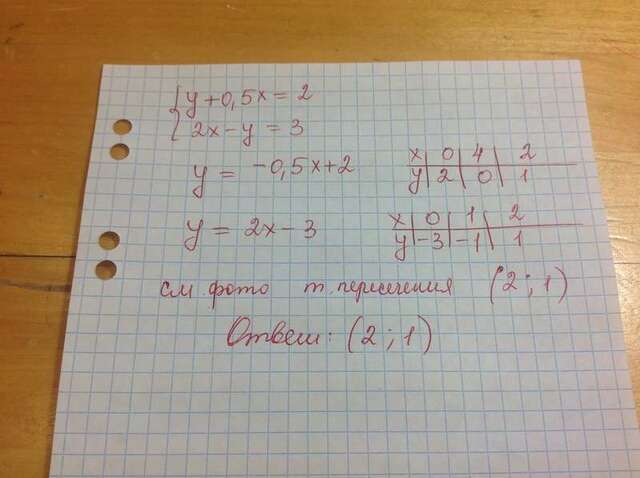 y+0,5x=2
2x-y=3
y= -0,5x+2
x 0 4 2
y 2 0 1
y = 2x-3
x 0 1 2
y -3 -1 1
см. фото т. пересечения (2;1)
Ответ: (2;1)